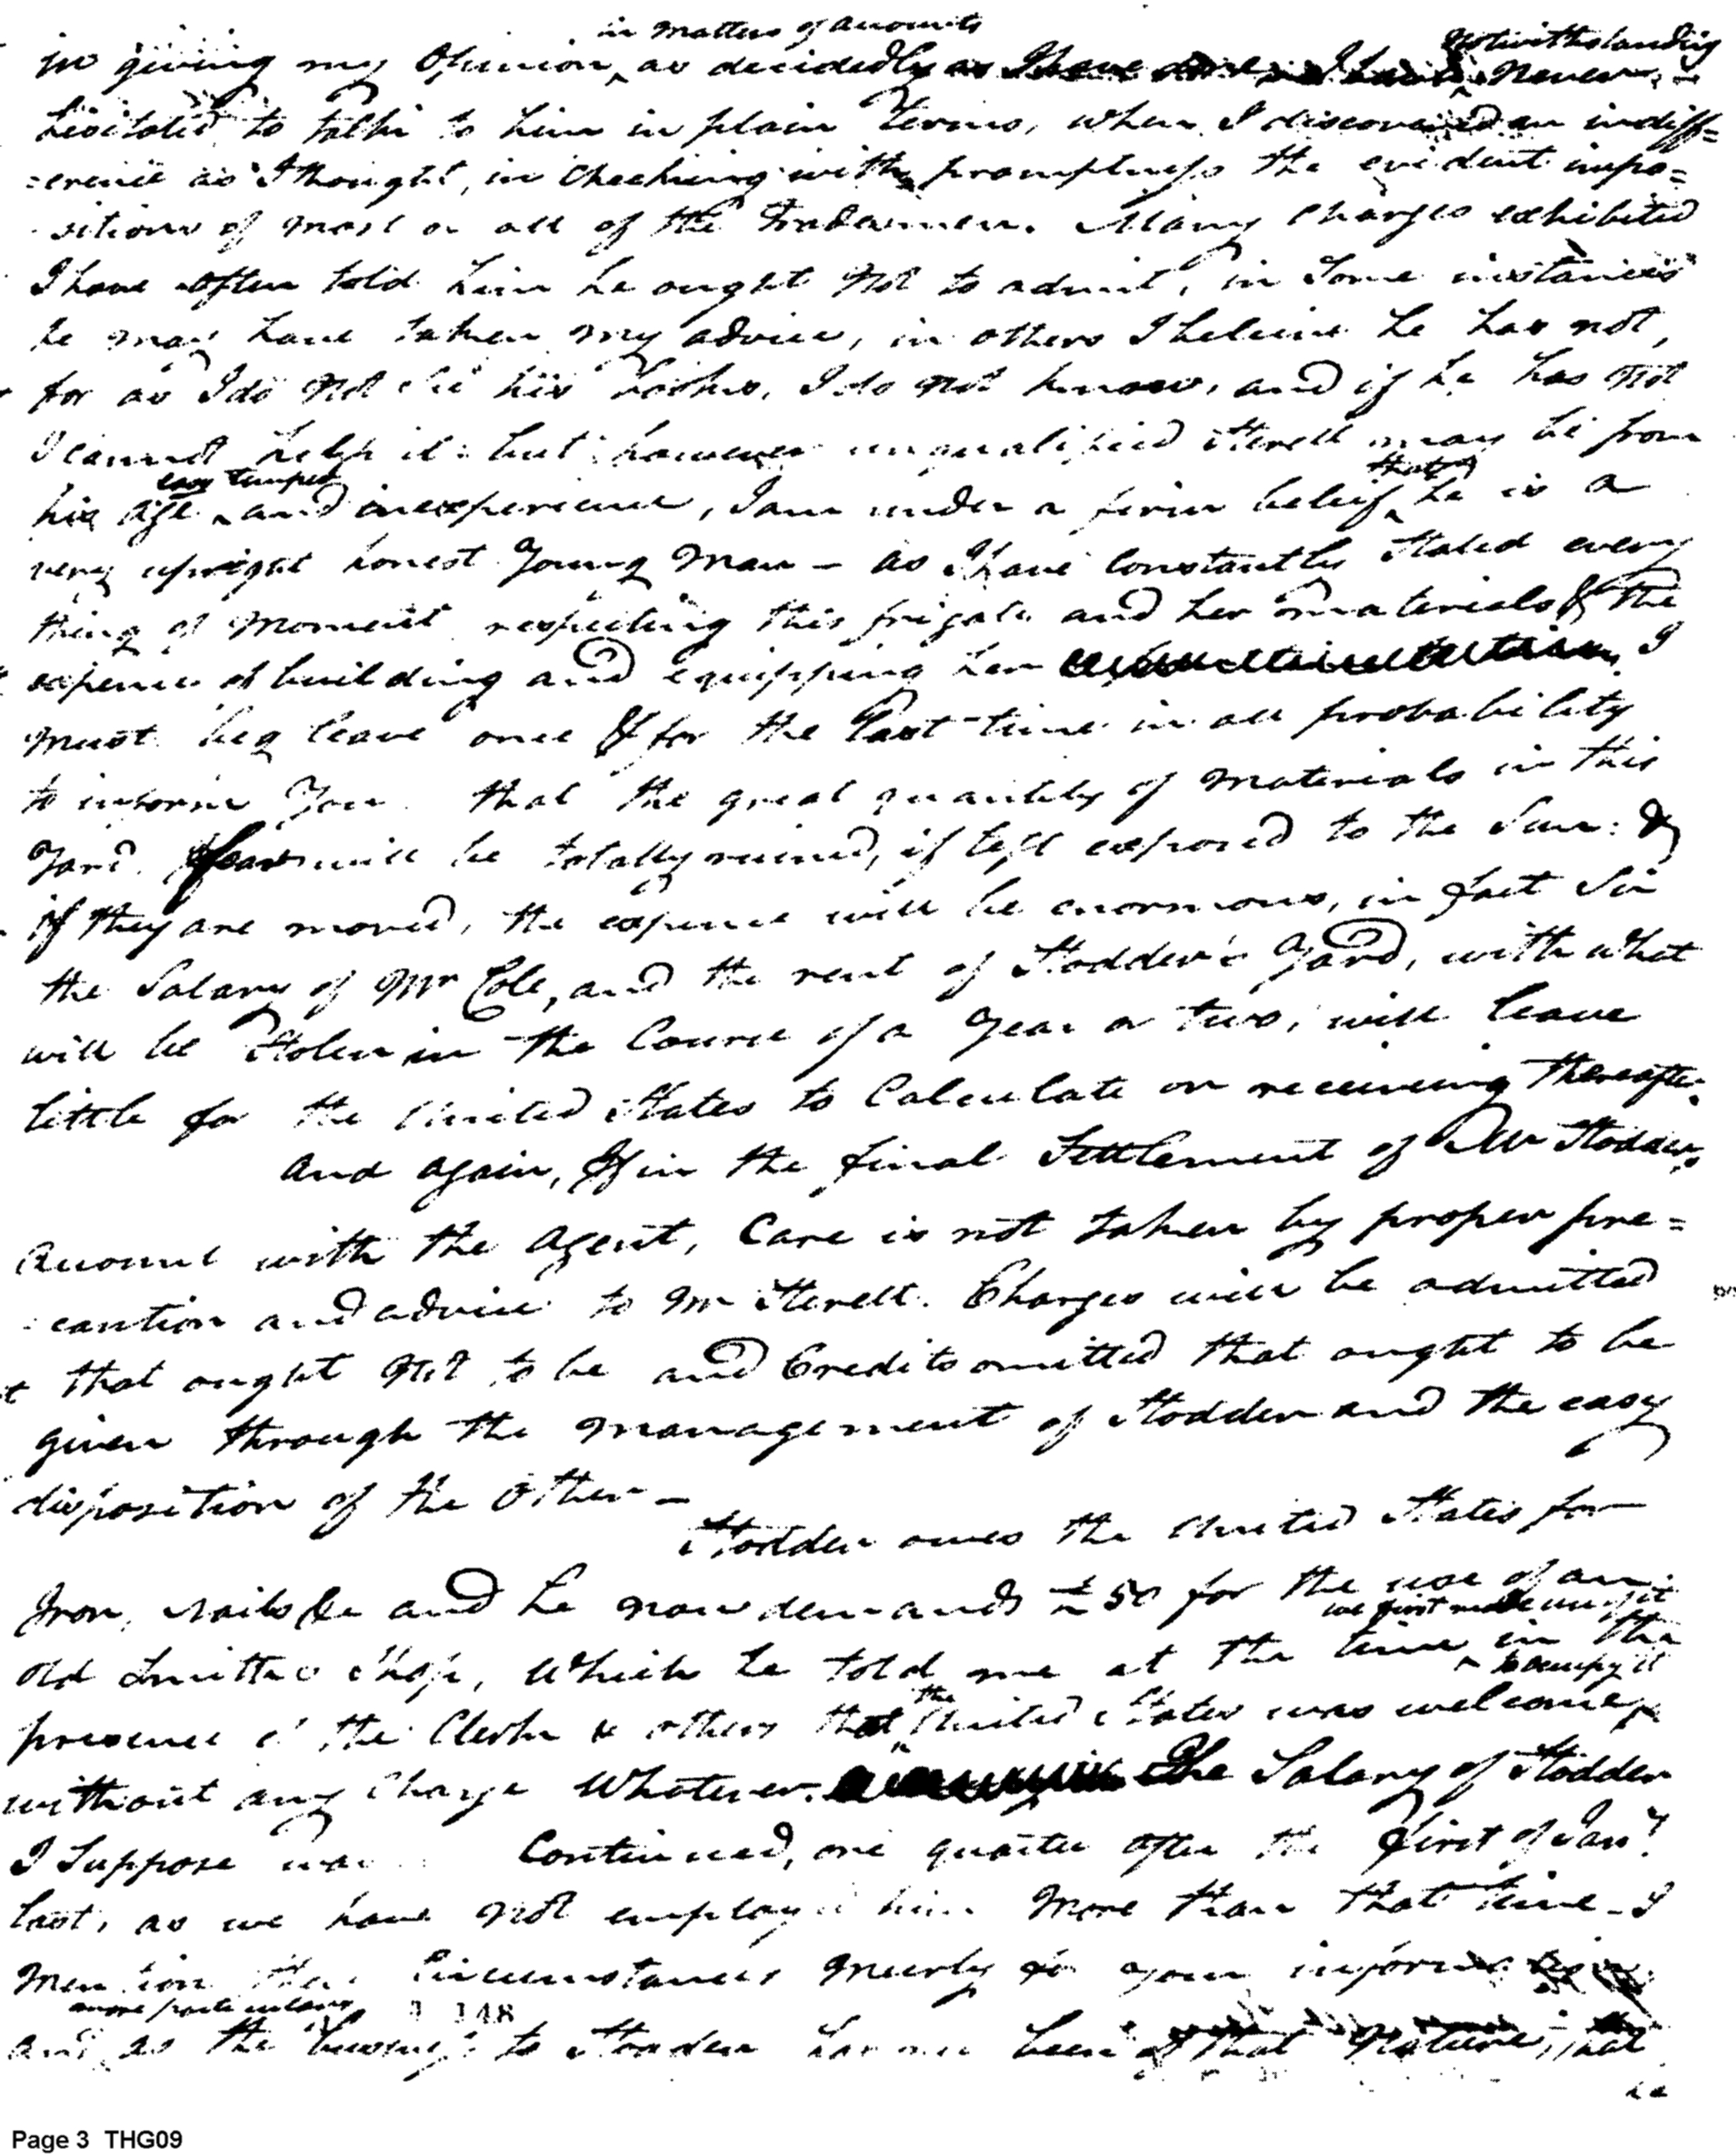 in matters of accounts
notwithstanding
in giving my Opinion as decidedly as I have done, I have never
hesitated to talk to him in plain terms, when I discovered an indiff=
=erence as I thought, in checking with promptness the evident impo=
sitions of most or all of the Tradesmen. Many Charges exhibited
I have often told him he ought not to admit, in some instances
he may have taken my advice, in others I beleive he has not,
for as I do not see his books, I do not know, and if he has not
I cannot help it: but however unqualified Sterett may be from
easy temper
that
his age and inexperience, I am under a firm beleif he is a
very upright honest Young Man – as I have Constantly Stated every
thing of Moment respecting this frigate and her materials & the
expence of building and equipping her I
must beg leave once & for the last time in all probability
to inform You that the great quantity of Materials in this
Yard will be totally ruined, if left exposed to the Sun: &
if they are moved, the expence will be enormous, in fact Sir
the Salary of Mr Cole, and the rent of Stodder's Yard, with what
will be Stolen in the Course of a Year or two, will leave
little for the United States to Calculate on receiving thereafter.
And again, If in the final Settlement of Mr Stodders
Account with the Agent, Care is not taken by proper pre=
caution and advice to Mr Sterett. Charges will be admitted
that ought not to be and Credits omitted that ought to be
given through the management of Stodder and the easy
disposition of the Other –
Stodder owes the United States for
Iron, Nails &c and he now demands £50 for the use of an
we first made use of it
Old Smiths Shop, Which he told me at the time in the
to occupy it
the
presence of the Clerk & others that United States was welcome
without any Charge Whatever. The Salary of Stodder
I Suppose was Continued, one quarter after the first of Jany
last, as we have not employed him More than that time – I
Mention these Circumstances merely for your information
more particulars
148
and as the to Stodder has been of that Nature, that
he
Page 3 THG09